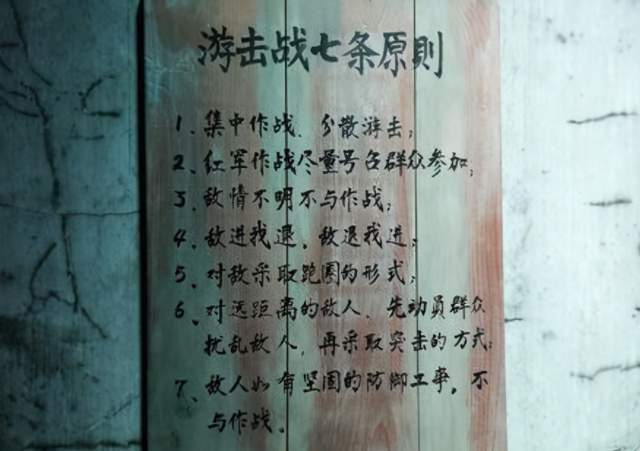 游击战七条原則
1、集中作战、分散游击；
2、红军作战尽量号召群众参加；
3、敌情不明不与作战；
4、敌进我退、敌退我进；
5、对敌采取跑圈的形式；
6、对远距离的敌人、先动員群众
扰乱敌人，再采取突击的方式；
7、敌人如有坚固的防御工事，不
与作战。